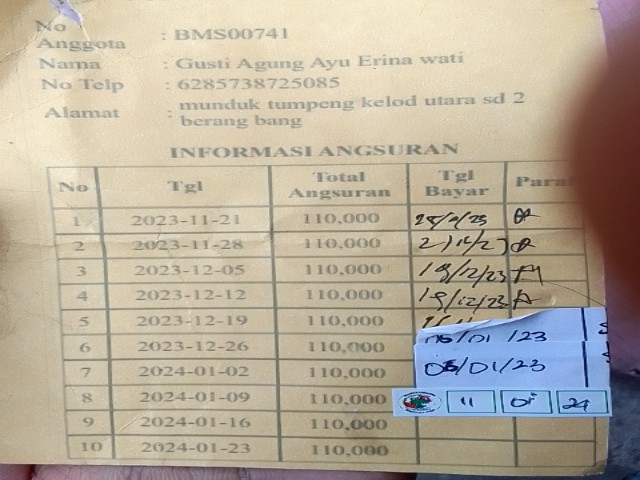 No Anggota : BMS00741
Nama : Gusti Agung Ayu Erina wati
No Telp : 6285738725085
Alamat : munduk tumpeng kelod utara sd 2
berang bang
INFORMASI ANGSURAN
No Tgl Total Angsuran Tgl Bayar
1 2023-11-21 110,000
2 2023-11-28 110,000
3 2023-12-05 110,000 /12/23
4 2023-12-12 110,000 19/12/23
5 2023-12-19 110,000
6 2023-12-26 110,000 /01/23
7 2024-01-02 110,000 06/01/23
8 2024-01-09 110,000 11 01 24
9 2024-01-16 110,000
10 2024-01-23 110,000